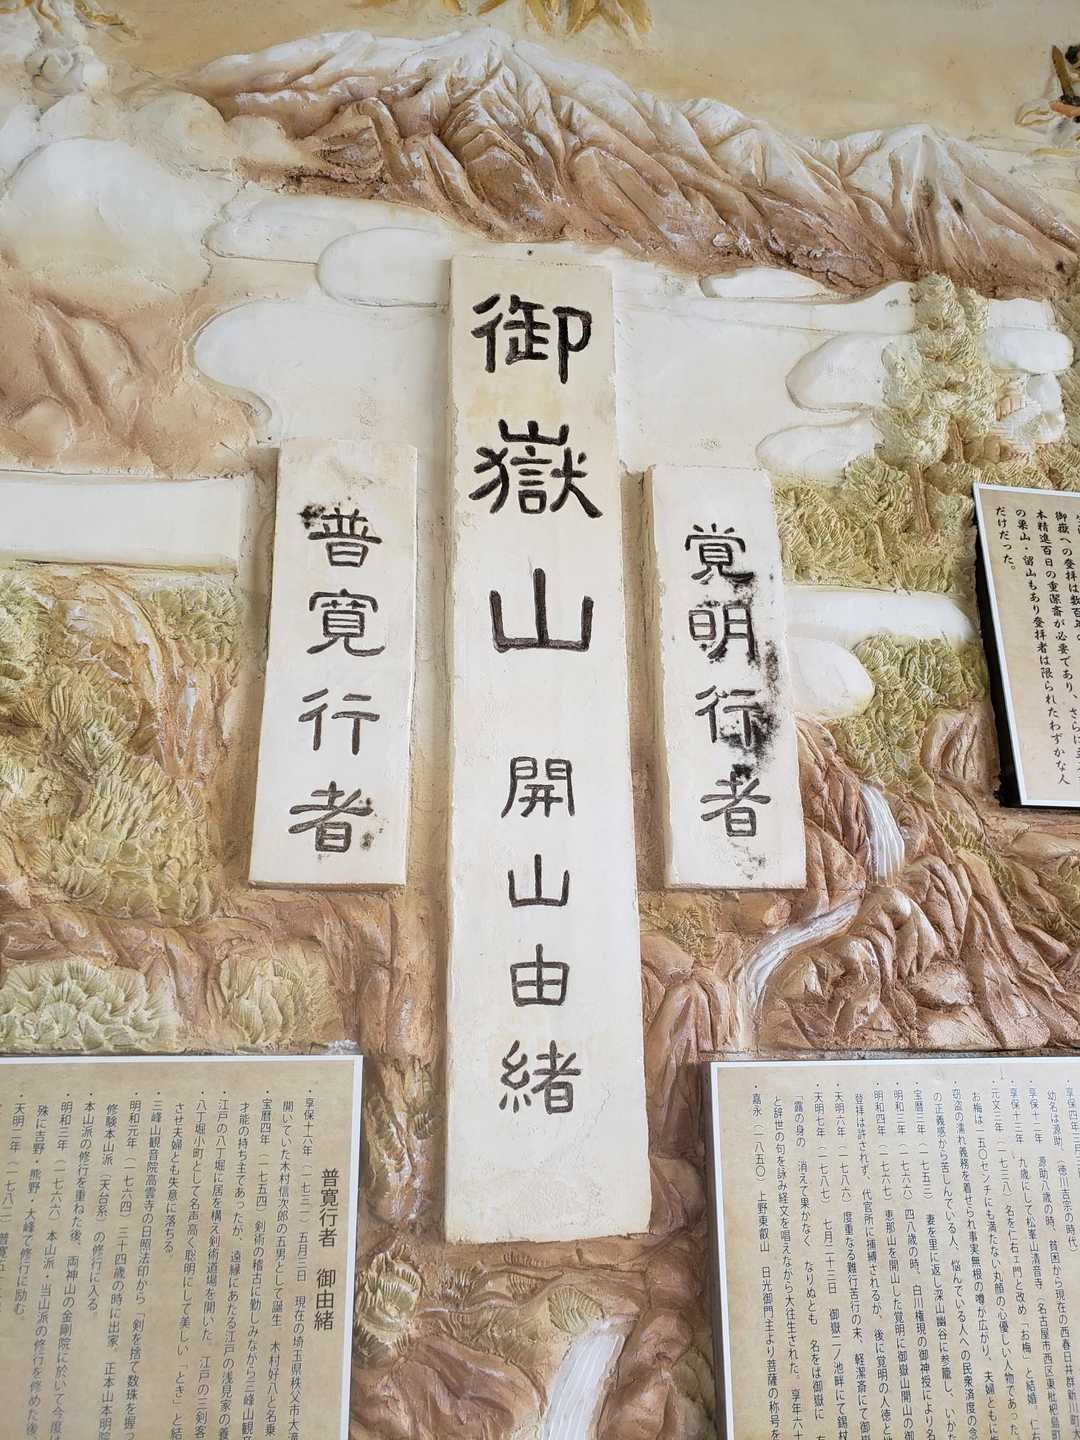 御嶽山 開山由緒
覚明行者
普寛行者
本精進百日の重潔斎が必要であり、さらに
の巣山・留山もあり登拝者は限られたわずかな人
だけだった。
幼名は源助、（徳川吉宗の時代）
・享保十二年 源助八歳の時、貧困から現在の西春日井群新川町
・享保十三年 九歳にして松峯山清音寺（名古屋市西区東枇杷島町
・元文三年（一七三八）名を仁右ェ門と改め「お梅」と結婚。仁右
お梅は一五〇センチにも満たない丸顔の心優しい人物であった。
・窃盗の濡れ義務を着せられ事実無根の噂が広がり、夫婦ともに
の正義感から苦しんでいる人、悩んでいる人への民衆済度の念
・宝暦三年（一七五三） 妻を里に返し深山幽谷に参籠し、いかな
・明和三年（一七六六）四八歳の時、白川権現の御神授により名
・明和四年（一七六七）恵那山を開山した覚明に御嶽山開山の御
登拝は許されず、代官所に捕縛されるが、後に覚明の人徳と
・天明六年（一七八六）度重なる難行苦行の末、軽潔斎にて御嶽
・天明七年（一七八七） 七月二十三日 御嶽二ノ池畔にて錫杖
「露の身の 消えて果かなく なりぬとも 名をば御嶽に
と辞世の句を詠み経文を唱えながら大往生された。享年六十
・嘉永（一八五〇）上野東叡山 日光御門主より菩薩の称号を
普寛行者 御由緒
・享保十六年（一七三一）五月三日 現在の埼玉県秩父市大滝
開いていた木村信次郎の五男として誕生 木村好八と名乗
・宝暦四年（一七五四）剣術の稽古に勤しみながら三峰山観音
才能の持ち主であったが、遠縁にあたる江戸の浅見家の養
・江戸の八丁堀に居を構え剣術道場を開いた。江戸の三剣客
・八丁堀小町として名声高く聡明にして美しい「とき」と結
させ夫婦とも失意に落ちる。
・三峰山観音院高雲寺の日照法印から「剣を捨て数珠を握っ
・明和元年（一七六四）三十四歳の時に出家。正本山本明院
修験本山派（天台系）の修行に入る
・本山派の修行を重ねた後、両神山の金剛院に於いて今度は
・明和三年（一七六六）本山派・当山派の修行を修めた後、
殊に吉野・熊野・大峰で修行に励む。
・天明二年（一七八二）普寛